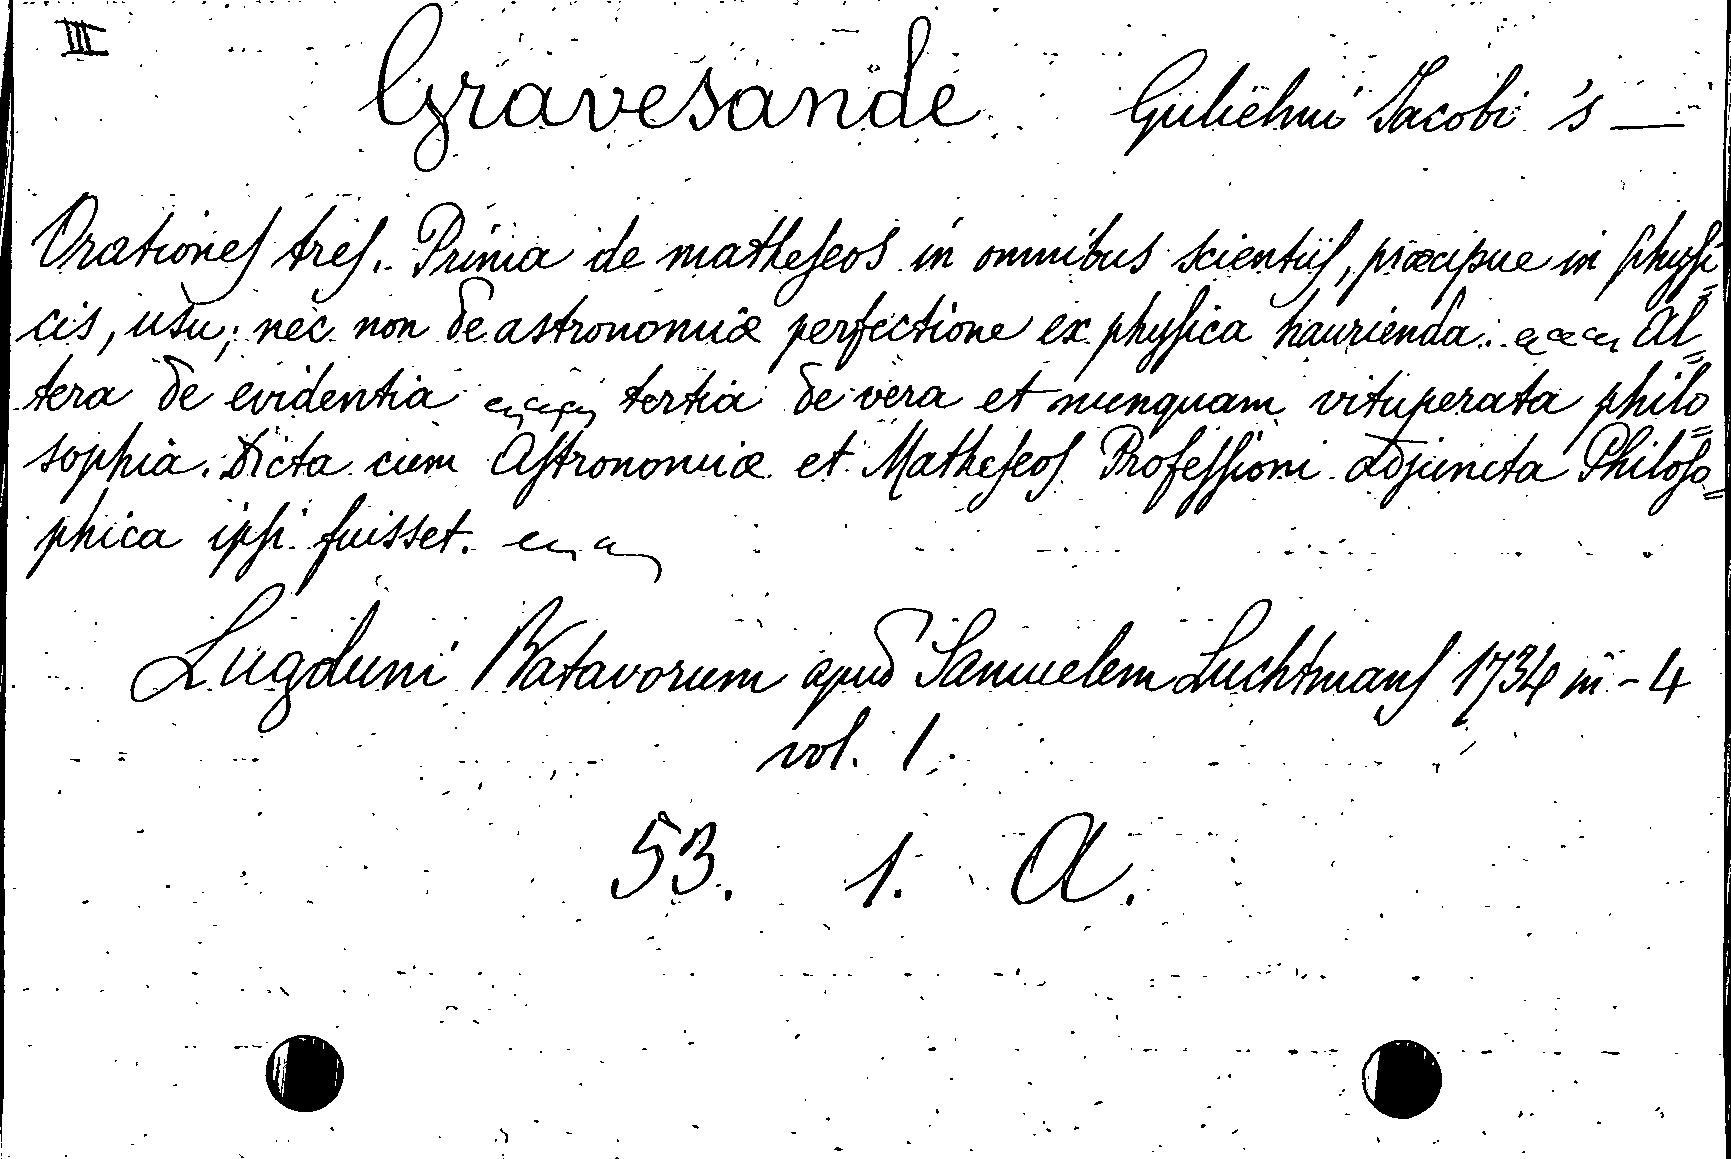 III
Gravesande Gulielmi Jacobi 's —
Orationes tres. Prima de matheseos in omnibus scientiis, præcipue in physi=
cis, usu; nec non de astronomiæ perfectione ex physica haurienda. Al=
tera de evidentia tertia de vera et nunquam vituperata philo=
sophia. Dicta cum Astronomiæ et Matheseos Professioni adjuncta Philoso=
phica ipsi fuisset.
Lugduni Batavorum apud Samuelem Luchtmans 1734 in-4
vol. 1.
53. 1. A.